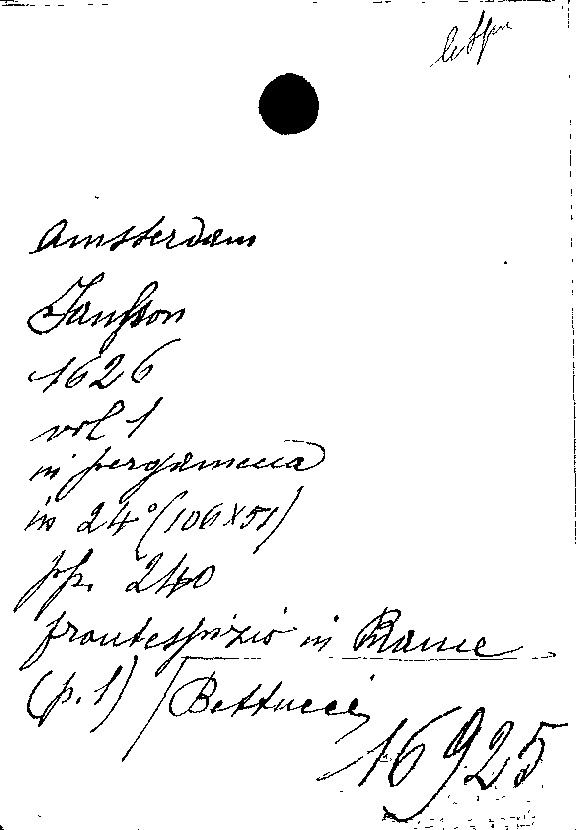 Amsterdam
Jansson
1626
vol 1
in pergamena
in 24° (106x51)
pp. 240
frontespizio in Rame
(p. 1) Bettucci
16925